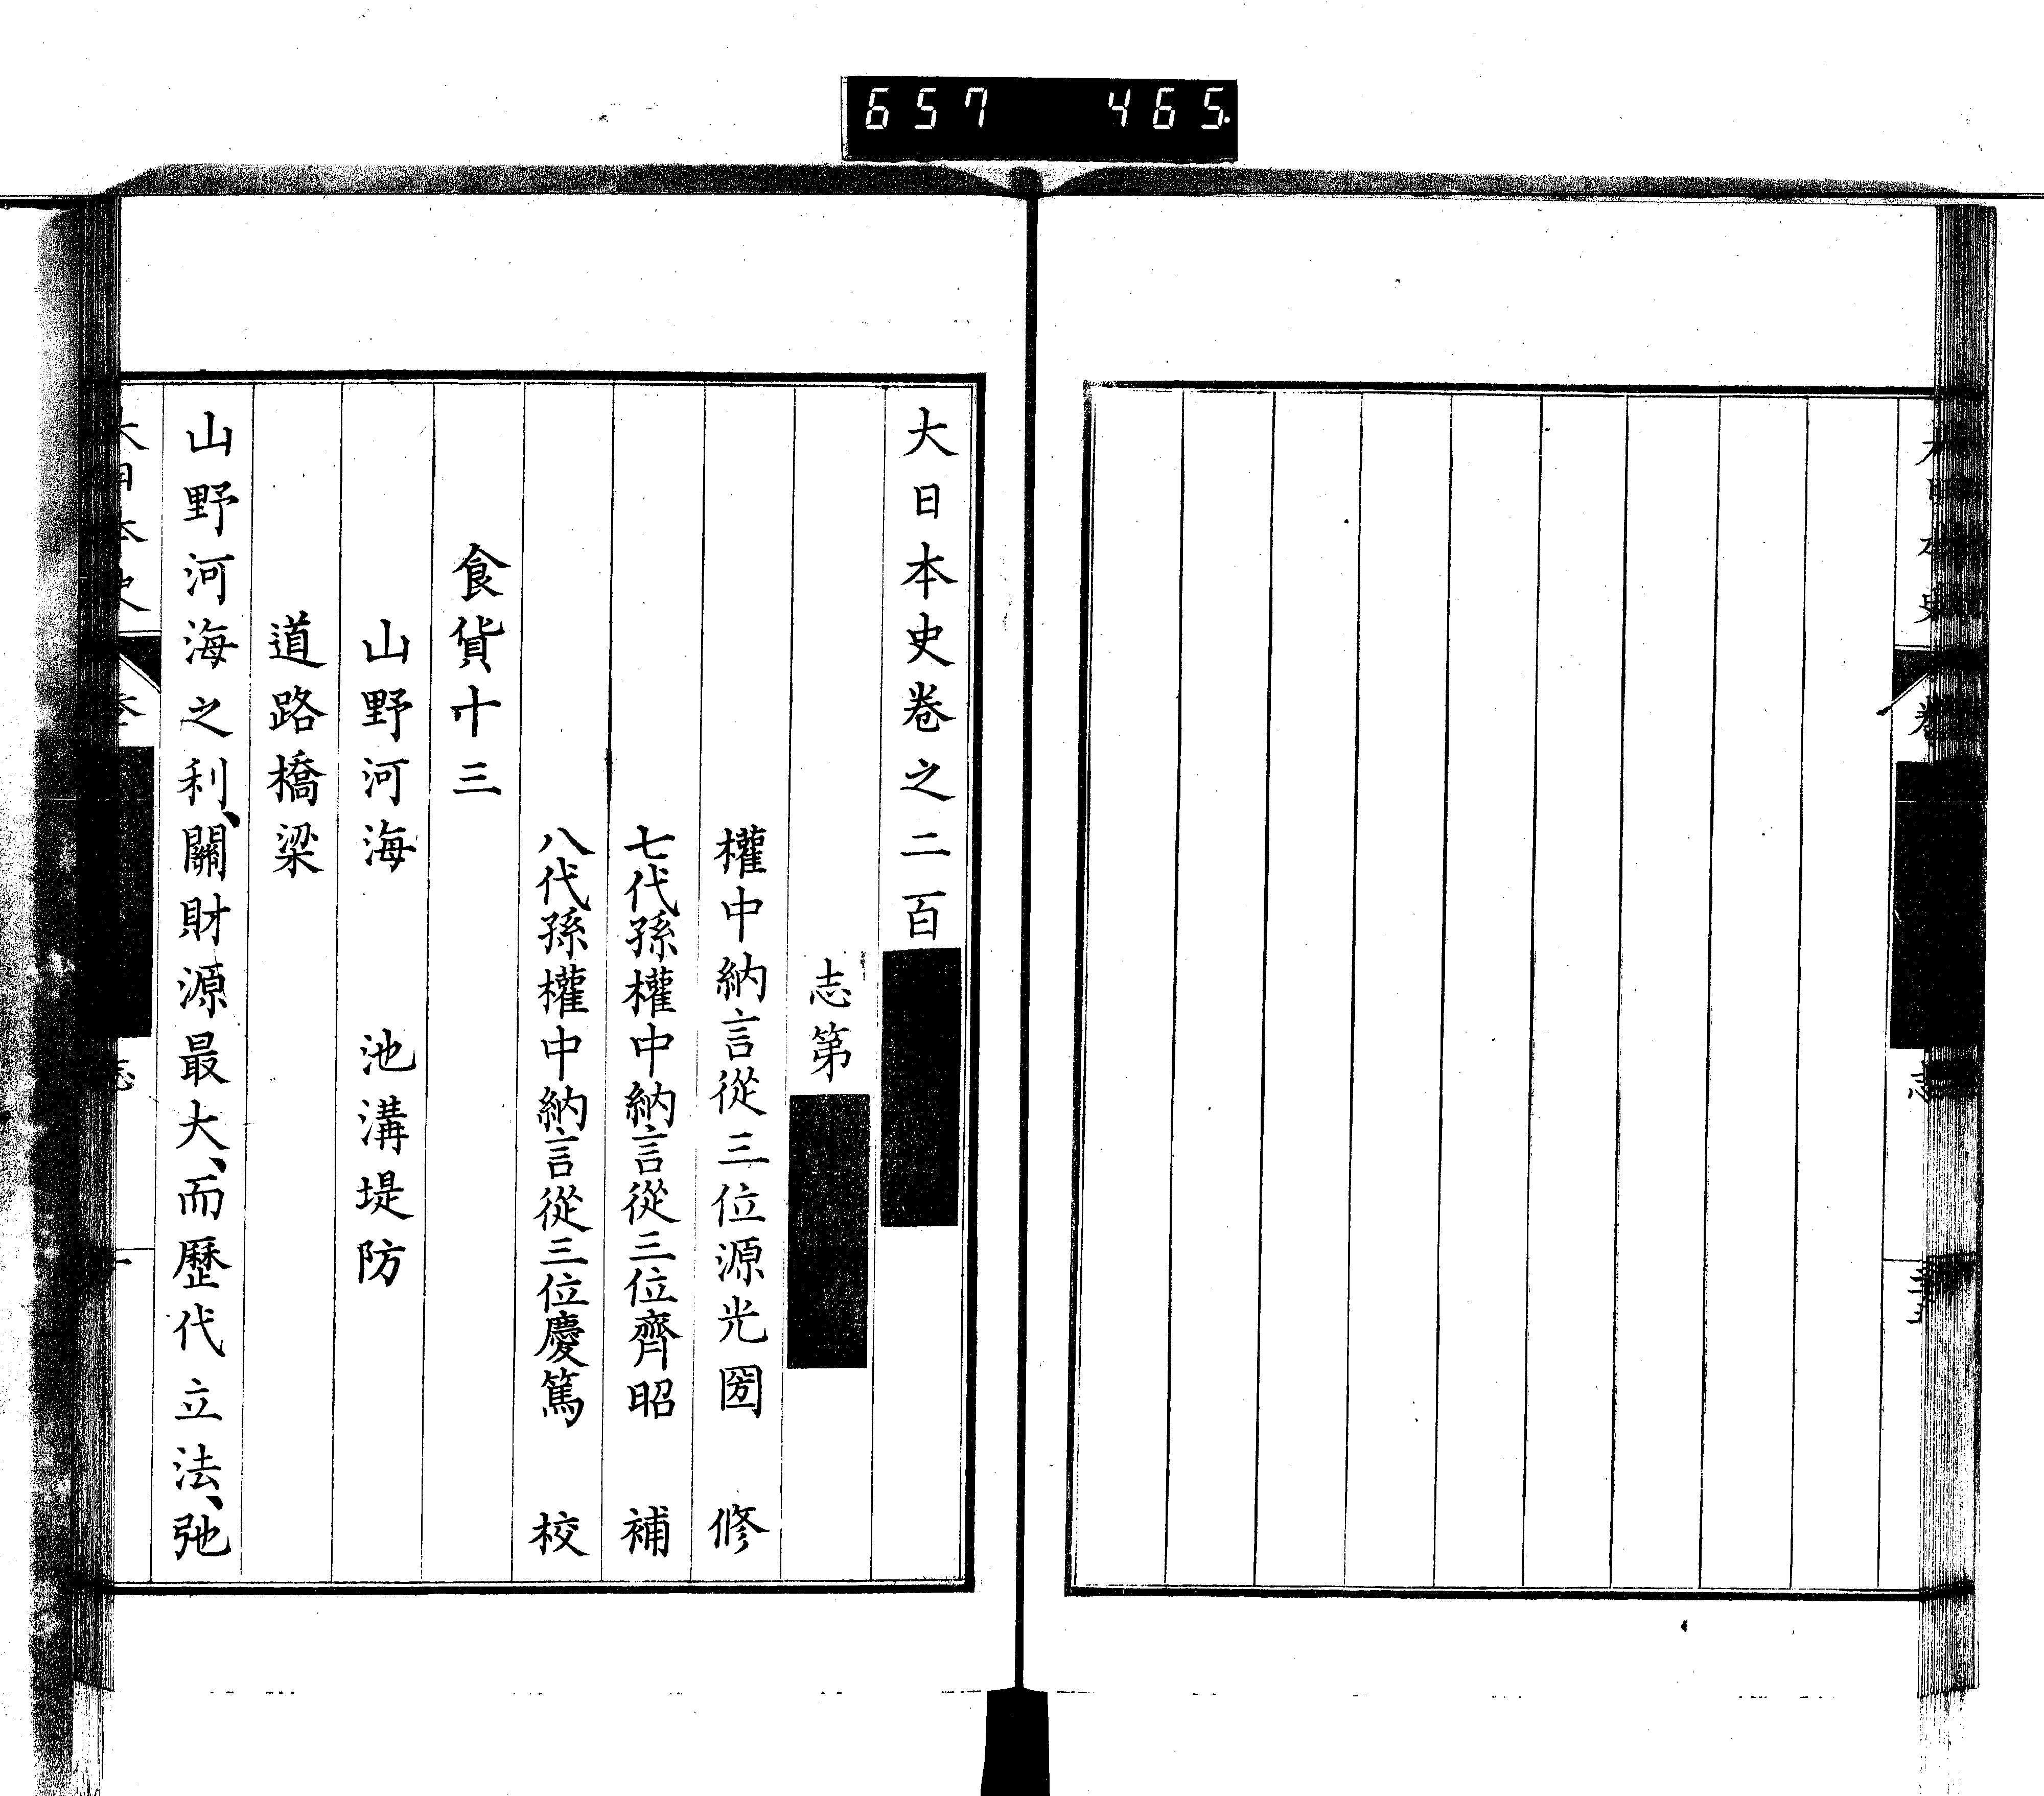 657 465
大日本史卷之二百
志第
權中納言從三位源光圀 修
七代孫權中納言從三位齊昭 補
八代孫權中納言從三位慶篤 校
食貨十三
山野河海 池溝堤防
道路橋梁
山野河海之利、關財源最大、而歷代立法、弛